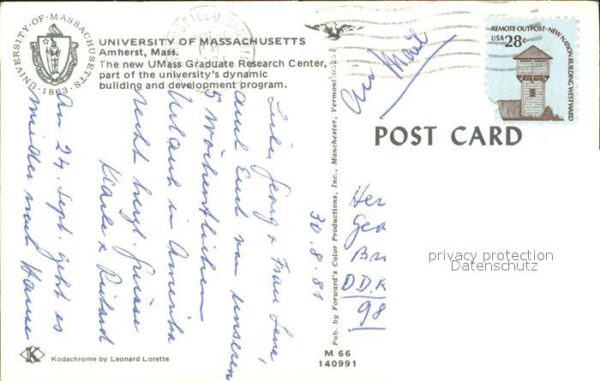 UNIVERSITY OF MASSACHUSETTS
1863
UNIVERSITY OF MASSACHUSETTS
Amherst, Mass.
The new UMass Graduate Research Center,
part of the university's dynamic
building and development program.
REMOTE OUTPOST·NEW NATION
BUILDING WESTWARD
USA 28c
Air Mail
POST CARD
30.8.81
Lieber Georg + Frau Lene,
auch Euch von unseren
8 wöchentlichen
Urlaub in Amerika
recht herzl. Grüsse
Klara + Richard
Am 24. Sept. geht es
wieder nach Hause
Her
Geo
Br
D.D.R
98
privacy protection
Datenschutz
Pub. by Forward's Color Productions, Inc., Manchester, Vermont U.S.A.
K
Kodachrome by Leonard Lorette
M 66
140991